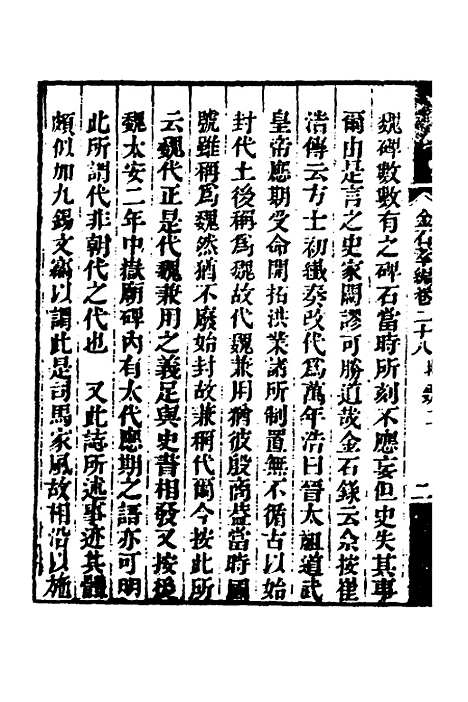 金石萃編卷二十八
二
魏碑數數有之碑石當時所刻不應妄但史失其事
爾由是言之史家闕謬可勝道哉金石錄云余按崔
浩傳云方士祁纎奏改代為萬年浩曰昔太祖道武
皇帝應期受命開拓洪業諸所制置無不循古以始
封代土後稱為魏故代魏兼用猶彼殷商蓋當時國
號雖稱為魏然猶不廢始封故兼稱代爾今按此所
云魏代正是代魏兼用之義足與史書相發又按後
魏太安二年中嶽廟碑內有太代應期之語亦可明
此所謂代非朝代之代也 又此誌所述事迹其體
頗似加九錫文竊以謂此是司馬家風故相沿以施